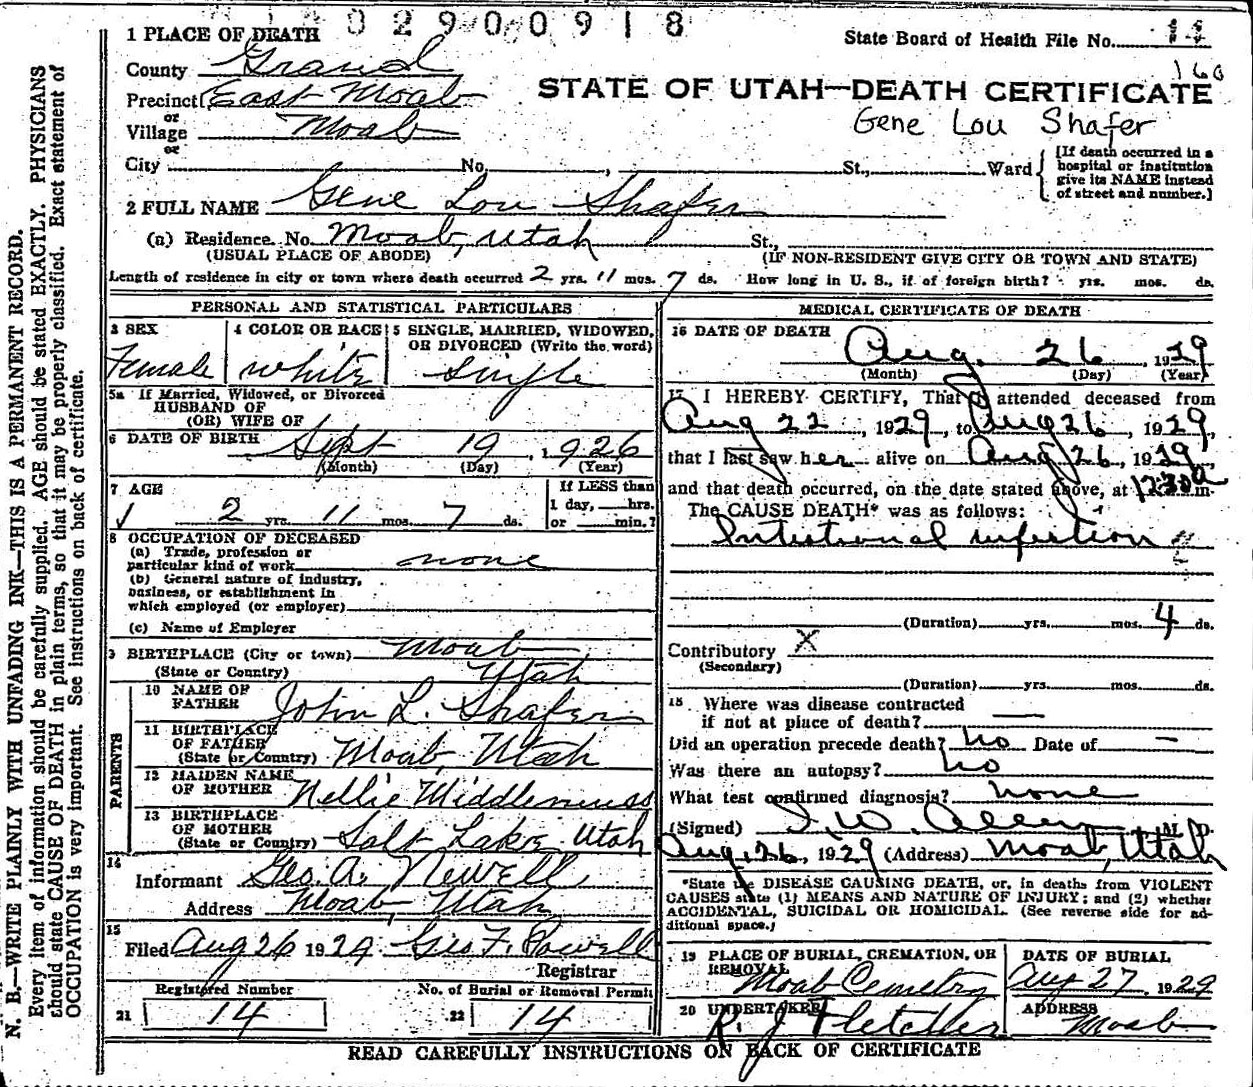 02900918
1 PLACE OF DEATH
State Board of Health File No. 14
160
County Grand
STATE OF UTAH—DEATH CERTIFICATE
Precinct East Moab
or
Gene Lou Shafer
Village Moab
or
City No. , St., Ward
[If death occurred in a hospital or institution give its NAME instead of street and number.]
2 FULL NAME Gene Lou Shafer
(a) Residence. No. Moab, Utah St.,
(USUAL PLACE OF ABODE) (IF NON-RESIDENT GIVE CITY OR TOWN AND STATE)
Length of residence in city or town where death occurred 2 yrs. 11 mos. 7 ds. How long in U. S., if of foreign birth? yrs. mos. ds.
PERSONAL AND STATISTICAL PARTICULARS
3 SEX
Female
4 COLOR OR RACE
white
5 SINGLE, MARRIED, WIDOWED,
OR DIVORCED (Write the word)
Single
5a If Married, Widowed, or Divorced
HUSBAND OF
(OR) WIFE OF
6 DATE OF BIRTH Sept 19, 1926
(Month) (Day) (Year)
7 AGE
2 yrs. 11 mos. 7 ds.
If LESS than
1 day, hrs.
or min.?
8 OCCUPATION OF DECEASED
(a) Trade, profession or
particular kind of work none
(b) General nature of industry,
business, or establishment in
which employed (or employer)
(c) Name of Employer
9 BIRTHPLACE (City or town) Moab
(State or Country) Utah
PARENTS
10 NAME OF
FATHER John L. Shafer
11 BIRTHPLACE
OF FATHER
(State or Country) Moab, Utah
12 MAIDEN NAME
OF MOTHER Nellie Middlemiss
13 BIRTHPLACE
OF MOTHER
(State or Country) Salt Lake, Utah
14
Informant Geo. A. Newell
Address Moab, Utah
15
Filed Aug 26 1929 Geo F. Powell
Registrar
Registered Number No. of Burial or Removal Permit
21 14 22 14
MEDICAL CERTIFICATE OF DEATH
16 DATE OF DEATH
Aug. 26, 1929
(Month) (Day) (Year)
17 I HEREBY CERTIFY, That I attended deceased from
Aug 22, 1929, to Aug 26, 1929,
that I last saw her alive on Aug 26, 1929,
and that death occurred, on the date stated above, at 12:30 a m.
The CAUSE DEATH* was as follows:
Intestional infection
(Duration) yrs. mos. 4 ds.
Contributory X
(Secondary)
(Duration) yrs. mos. ds.
18 Where was disease contracted
if not at place of death? —
Did an operation precede death? No Date of —
Was there an autopsy? No
What test confirmed diagnosis? none
(Signed) I. W. Allen, M. D.
Aug. 26, 1929 (Address) Moab, Utah
*State the DISEASE CAUSING DEATH, or, in deaths from VIOLENT
CAUSES state (1) MEANS AND NATURE OF INJURY; and (2) whether
ACCIDENTAL, SUICIDAL OR HOMICIDAL. (See reverse side for ad-
ditional space.)
19 PLACE OF BURIAL, CREMATION, OR
REMOVAL
Moab Cemetry
DATE OF BURIAL
Aug 27, 1929
20 UNDERTAKER
R. J. Fletcher
ADDRESS
Moab
READ CAREFULLY INSTRUCTIONS ON BACK OF CERTIFICATE
N. B.—WRITE PLAINLY WITH UNFADING INK—THIS IS A PERMANENT RECORD.
Every item of information should be carefully supplied. AGE should be stated EXACTLY. PHYSICIANS
should state CAUSE OF DEATH in plain terms, so that it may be properly classified. Exact statement of
OCCUPATION is very important. See instructions on back of certificate.